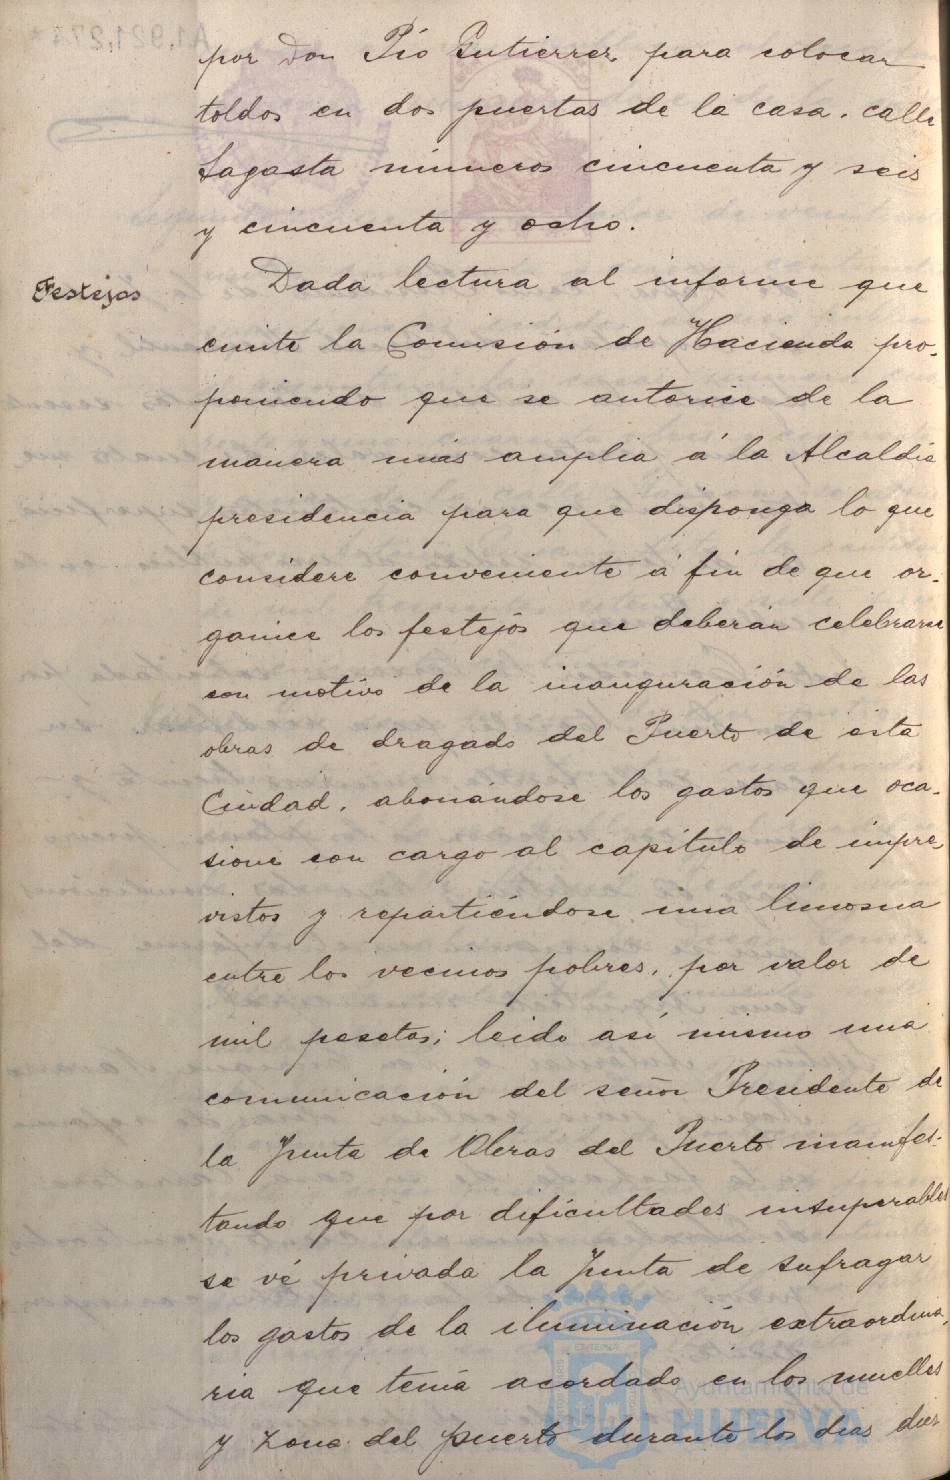 por Don Pío Gutierrez para colocar
toldos en dos puertas de la casa. calle
Sagasta números cincuenta y seis
y cincuenta y ocho.
Festejos
Dada lectura al informe que
emite la Comisión de Hacienda pro-
poniendo que se autorice de la
manera más amplia á la Alcaldía
presidencia para que disponga lo que
considere conveniente á fin de que or-
ganice los festejos que deberán celebrarse
con motivo de la inauguración de las
obras de dragado del Puerto de esta
Ciudad. abonándose los gastos que oca-
sione con cargo al capítulo de impre-
vistos y repartiéndose una limosna
entre los vecinos pobres, por valor de
mil pesetas; leido asi mismo una
comunicación del señor Presidente de
la Junta de Obras del Puerto manifes-
tando que por dificultades insuperables
se vé privada la Junta de sufragar
los gastos de la iluminación extraordina-
ria que tenía acordado en los muelles
y zona del puerto durante los dias
Ayuntamiento de
HUELVA